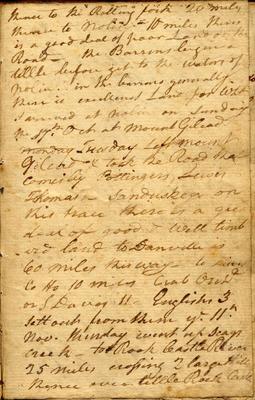 thence to the Rolling fork 20 miles
thence to Nolin 10 miles there
is a good deal of poor Land on the
Road — the Barrens begin a
little before get to the waters of
Nolin — in the barrens generally
there is excellent Land for
I arrived at Nolin on Sunday
the Octr. at Mount Gilead
monday Tuesday Left mount
Gilead & took the Road that
comes by Pottingers, Lewis
Thomas — Sandusky on
this trace there is a great
deal of good & well timb
erd land to Danville is
60 miles this way — to
Co Ho 10 miles Crab Orchd
or J Davis 11 — Englishs 3
sett out from there ye 11th
Novr. thursday went up Scags
creek — to Rock Castle River
25 miles crossing 2 large hills
thence over little Rock Castle